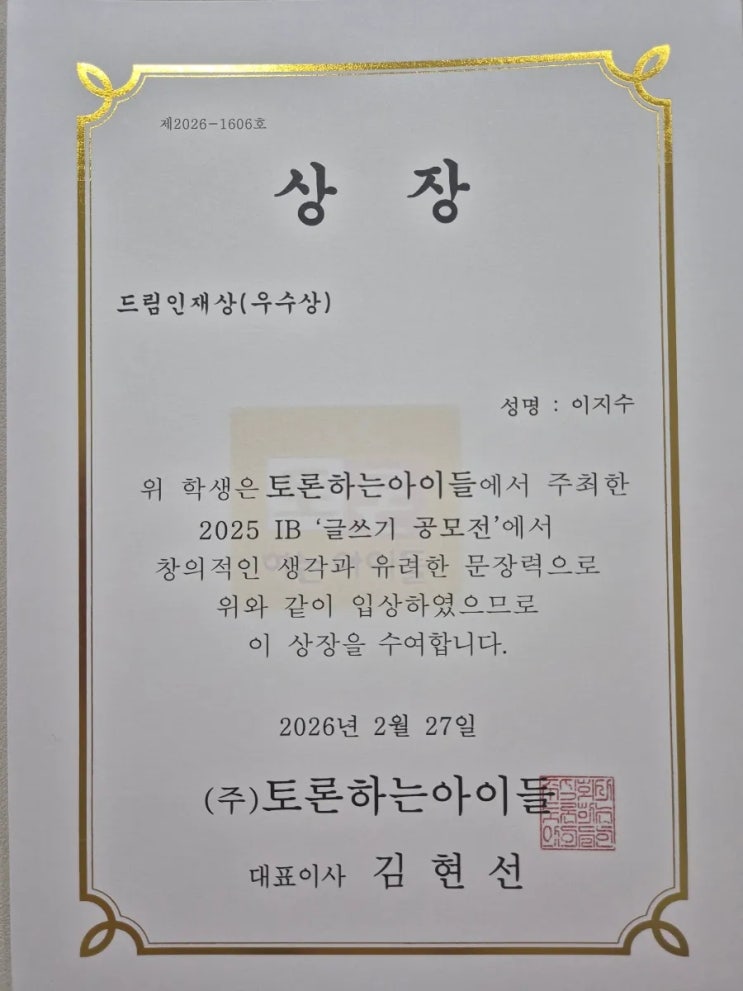 제2026-1606호
상 장
드림인재상(우수상)
성명 : 이지수
위 학생은 토론하는아이들에서 주최한
2025 IB ‘글쓰기 공모전’에서
창의적인 생각과 유려한 문장력으로
위와 같이 입상하였으므로
이 상장을 수여합니다.
2026년 2월 27일
(주)토론하는아이들
대표이사 김 현 선